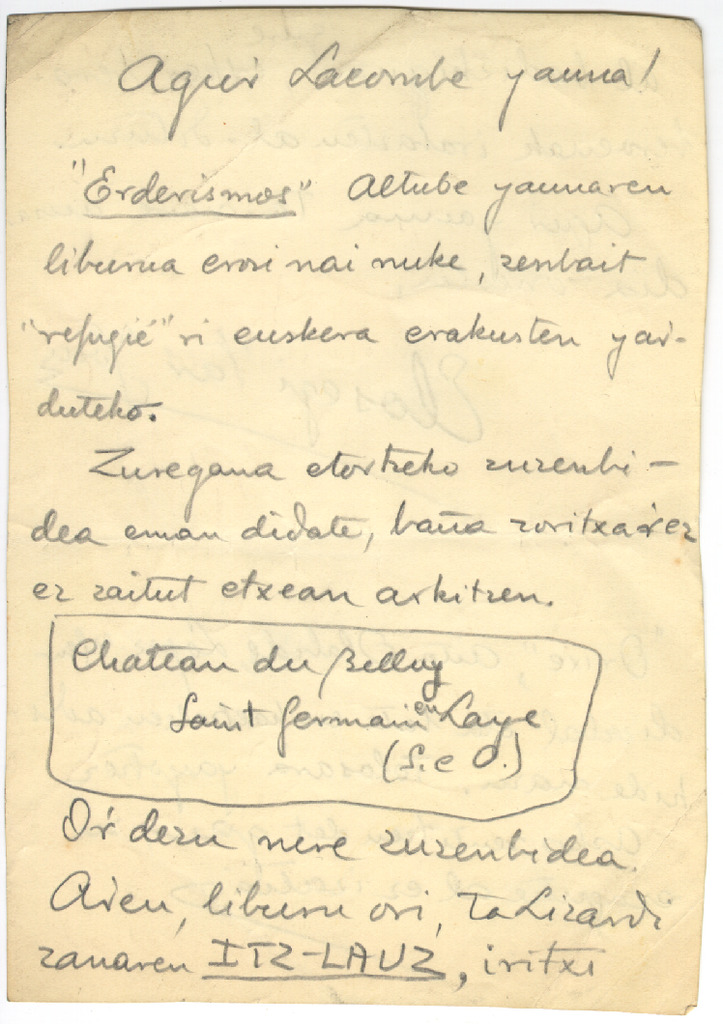 Agur Lacombe yauna!
"Erderismos" Altube yaunaren
liburua erosi nai nuke, zenbait
"refugié"ri euskera erakusten yar-
duteko.
Zuregana etortzeko zuzenbi-
dea eman didate, baña zoritxaŕez
ez zaitut etxean arkitzen.
Chateau du Belloy
Saint Germain en Laye
(S. e O.)
Oŕ dezu nere zuzenbidea.
Aren, liburu ori, ta Lizardi
zanaren ITZ-LAUZ, iritxi